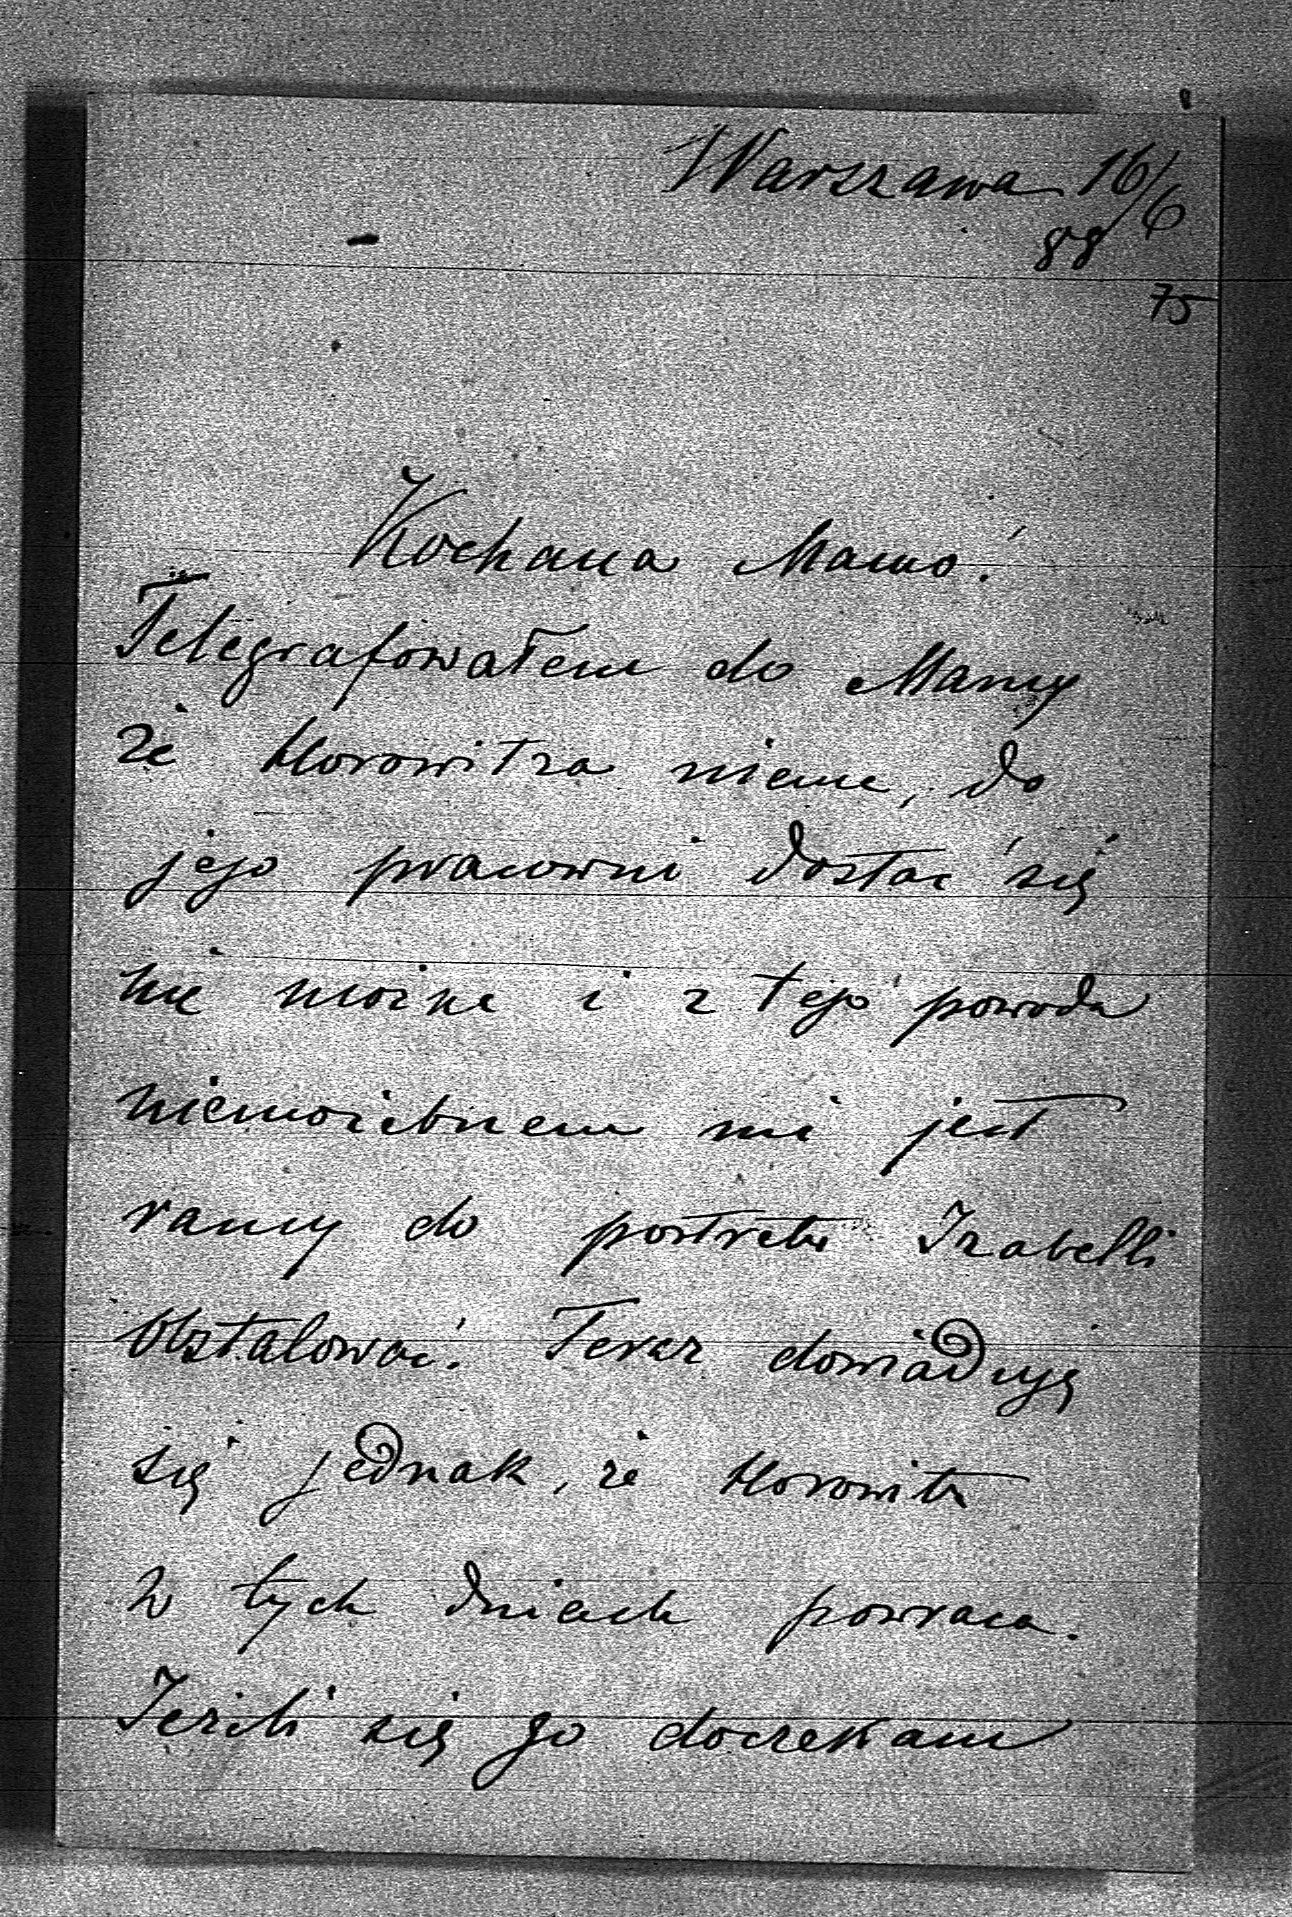 Warszawa 16/6
88
75
Kochana Mamo!
Telegrafowałem do Mamy
że Horowitza niema, do
jego pracowni dostać się
nie można i z tego powodu
niemożebnem mi jest
ramy do portretu Izabelli
obstalować. Teraz dowiaduję
się jednak, że Horowitz
w tych dniach powraca.
Jeżeli się go doczekam